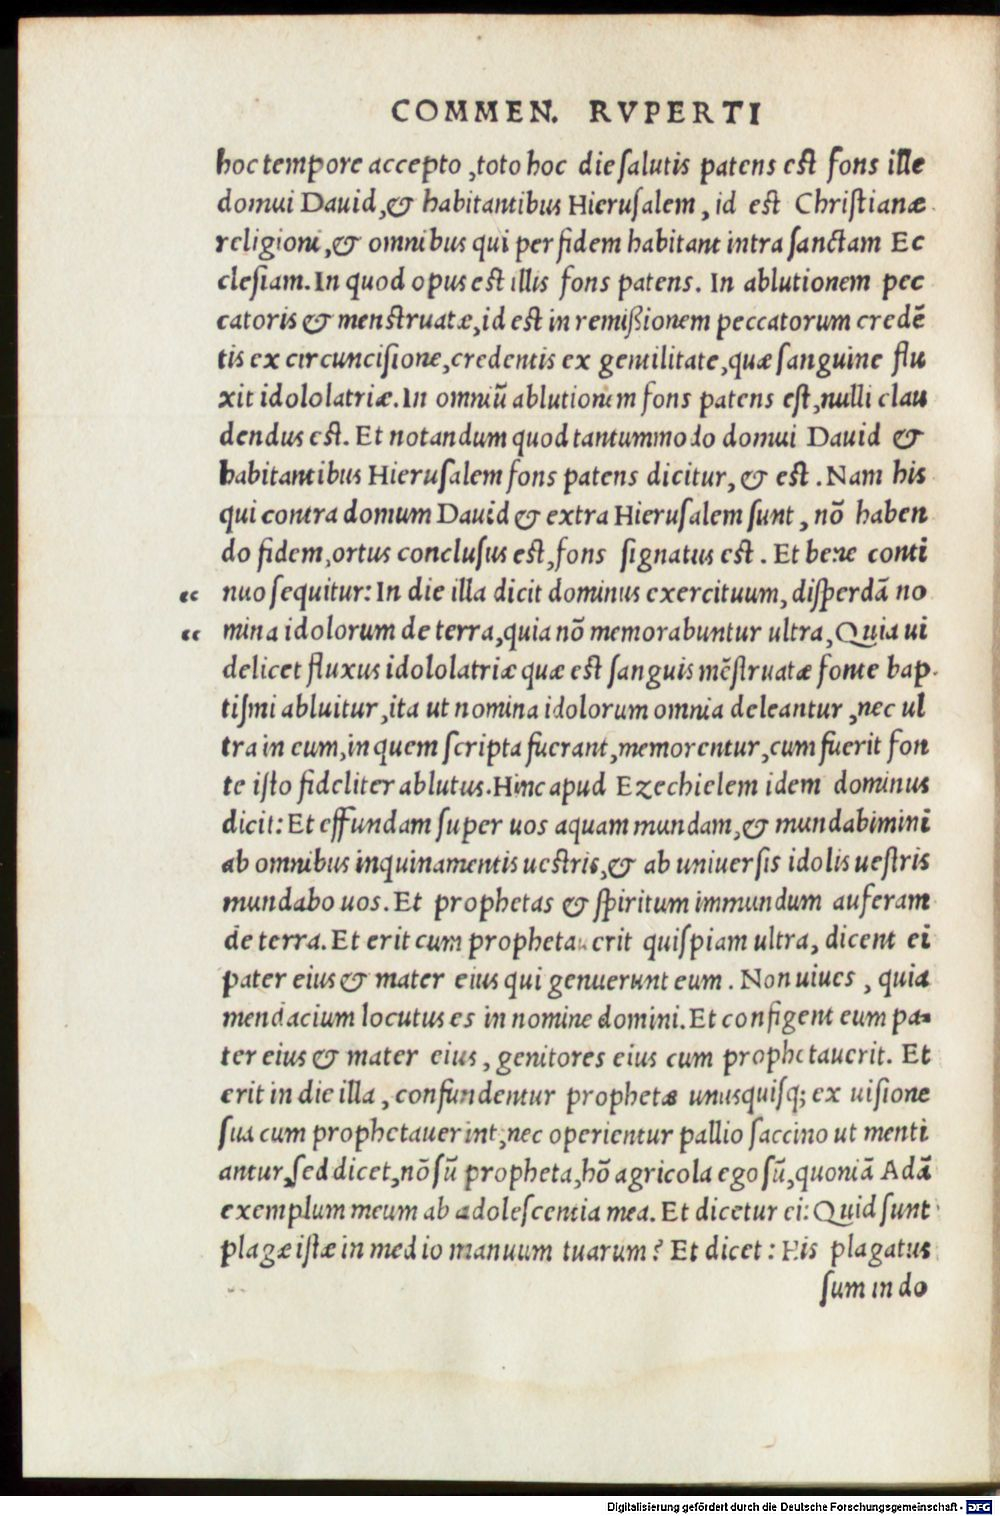 COMMEN. RVPERTI
hoc tempore accepto, toto hoc die salutis patens est fons ille
domui Dauid, & habitantibus Hierusalem, id est Christianæ
religioni, & omnibus qui per fidem habitant intra sanctam Ec
clesiam. In quod opus est illis fons patens. In ablutionem pec
catoris & menstruatæ, id est in remißionem peccatorum credē
tis ex circuncisione, credentis ex gentilitate, quæ sanguine flu
xit idololatriæ. In omniū ablutionem fons patens est, nulli clau
dendus est. Et notandum quod tantummodo domui Dauid &
habitantibus Hierusalem fons patens dicitur, & est. Nam his
qui contra domum Dauid & extra Hierusalem sunt, nō haben
do fidem, ortus conclusus est, fons signatus est. Et bene conti
“ nuo sequitur: In die illa dicit dominus exercituum, disperdā no
“ mina idolorum de terra, quia nō memorabuntur ultra, Quia ui
delicet fluxus idololatriæ quæ est sanguis mēstruatæ fonte bap
tismi abluitur, ita ut nomina idolorum omnia deleantur, nec ul
tra in eum, in quem scripta fuerant, memorentur, cum fuerit fon
te isto fideliter ablutus. Hinc apud Ezechielem idem dominus
dicit: Et effundam super uos aquam mundam, & mundabimini
ab omnibus inquinamentis uestris, & ab uniuersis idolis uestris
mundabo uos. Et prophetas & spiritum immundum auferam
de terra. Et erit cum prophetauerit quispiam ultra, dicent ei
pater eius & mater eius qui genuerunt eum. Non uiues, quia
mendacium locutus es in nomine domini. Et configent eum pa-
ter eius & mater eius, genitores eius cum prophetauerit. Et
erit in die illa, confundentur prophetæ unusquisq; ex uisione
sua cum prophetauerint, nec operientur pallio saccino ut menti
antur, sed dicet, nō sū propheta, hō agricola ego sū, quoniā Adā
exemplum meum ab adolescentia mea. Et dicetur ei: Quid sunt
plagæ istæ in medio manuum tuarum? Et dicet: His plagatus
sum in do
Digitalisierung gefördert durch die Deutsche Forschungsgemeinschaft - DFG